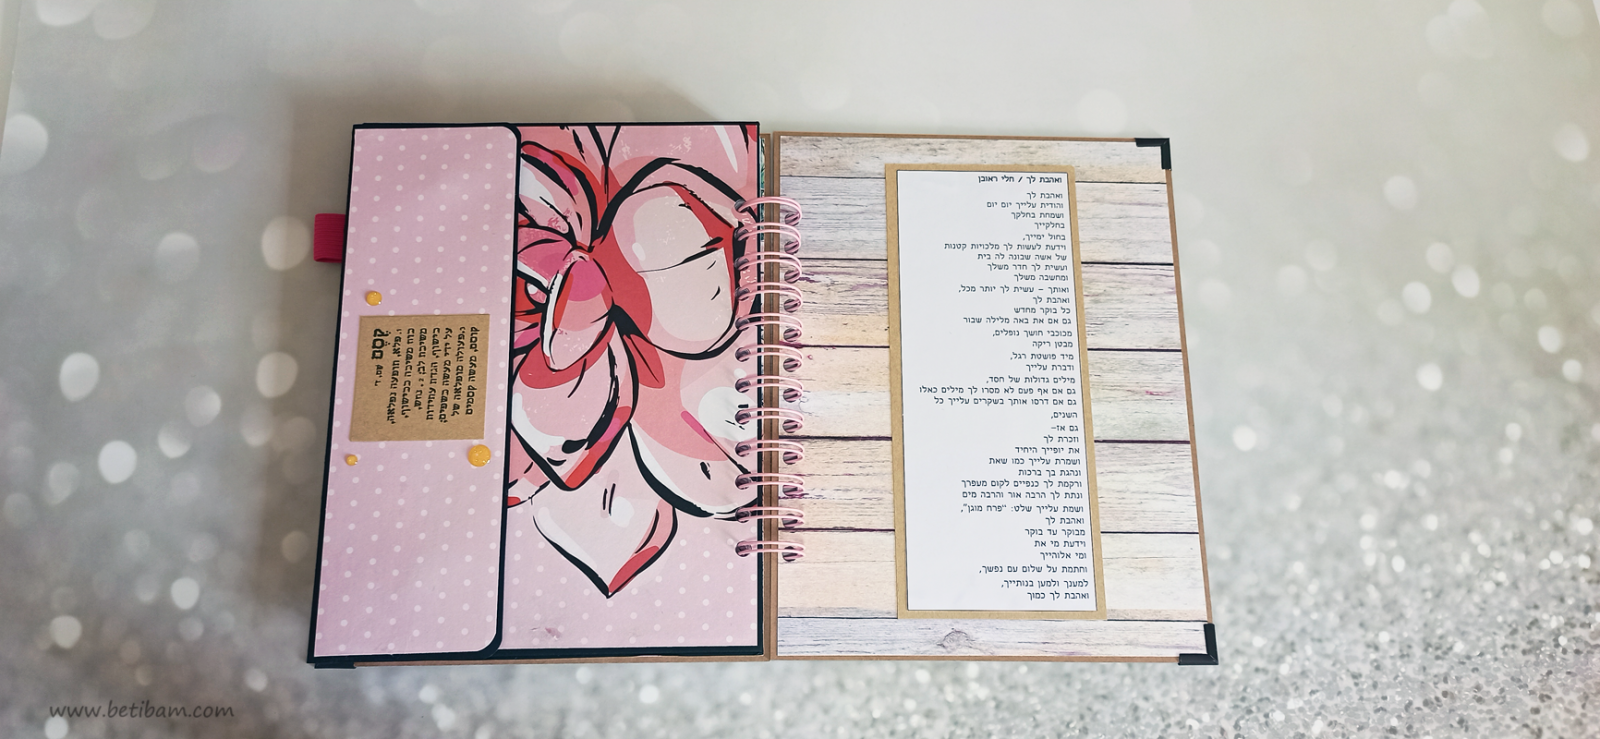 ואהבת לך / חלי ראובן
ואהבת לך
והודית עלייך יום יום
ושמחת בחלקך
בחלקייך
בחול ימייך,
וידעת לעשות לך מלכויות קטנות
של אשה שבונה לה בית
ועשית לך חדר משלך
ומחשבה משלך
ואותך – עשית לך יותר מכל,
ואהבת לך
כל בוקר מחדש
גם אם את באה מלילה שבור
מכוכבי חושך נופלים,
מבטן ריקה
מיד פושטת רגל,
ודברת עלייך
מילים גדולות של חסד,
גם אם אף פעם לא מסרו לך מילים כאלו
גם אם דרסו אותך בשקרים עלייך כל
השנים,
גם אז–
וזכרת לך
את יופייך היחיד
ושמרת עלייך כמו שאת
ונהגת בך ברכות
ורקמת לך כנפיים לקום מעפרך
ונתת לך הרבה אור והרבה מים
ושמת עלייך שלט: "פרח מוגן",
ואהבת לך
מבוקר עד בוקר
וידעת מי את
ומי אלוהייך
וחתמת על שלום עם נפשך,
למענך ולמען בנותייך,
ואהבת לך כמוך
קֶסֶם
www.betibam.com